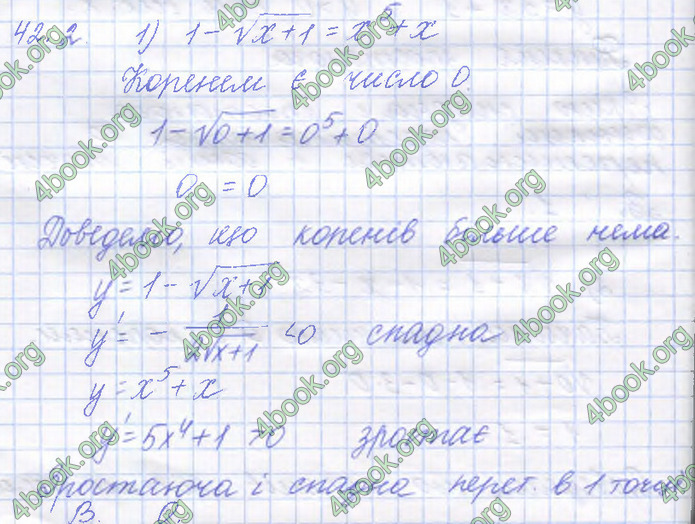 42.2 1) 1 - √(x+1) = x⁵ + x
Коренем є число 0.
1 - √(0+1) = 0⁵ + 0
0 = 0
Доведемо, що коренів більше нема.
y = 1 - √(x+1)
y' = - 1/(2√(x+1)) < 0 спадна
y = x⁵ + x
y' = 5x⁴ + 1 > 0 зростає
зростаюча і спадна перет. в 1 точці